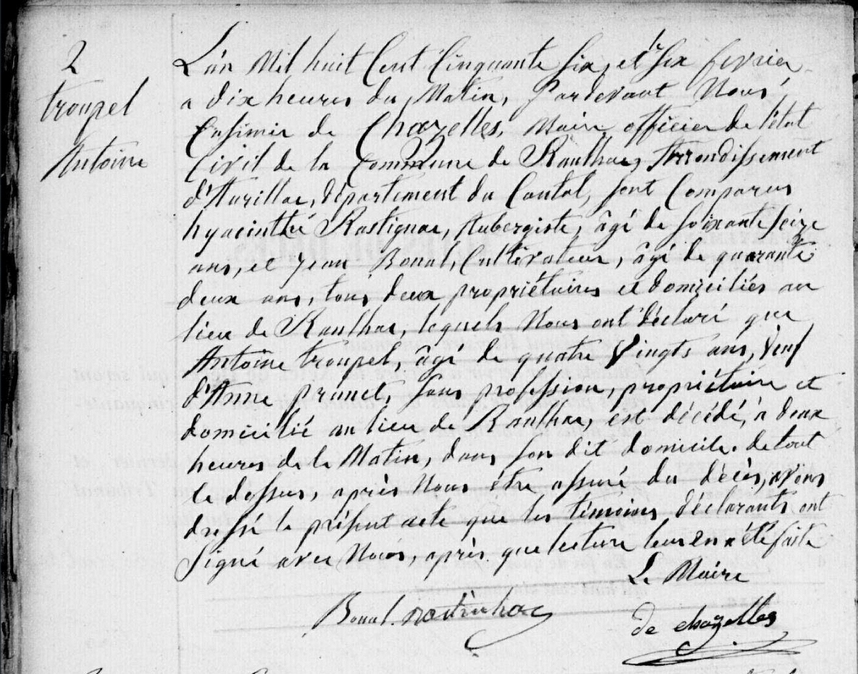 2
troupel
Antoine
L'an Mil huit Cent Cinquante six, et six fevrier
a dix heures du Matin, Pardevant Nous,
Casimir de Chazelles, Maire, officier de l'état
Civil de la Commune de Raulhac, Arrondissement
d'Aurillac, département du Cantal, sont Comparus
hyacinthe Rastignac, Aubergiste, âgé de soixante seize
ans, et Jean Bonal, Cultivateur, âgé de quarante
deux ans, tous deux propriétaires et domiciliés au
lieu de Raulhac, lesquels Nous ont déclaré que
Antoine troupel, âgé de quatre Vingts ans, Veuf
d'Anne prunet, sans profession, propriétaire et
domicilié au lieu de Raulhac, est décédé, à deux
heures de le Matin, dans son dit domicile. de tout
ce dessus, après Nous être assuré du décès, avons
dressé le présent acte que les témoins déclarants ont
Signé avec Nous, après que lecture leur en a été faite
Le Maire
Bonal rastinhac
de chazelles